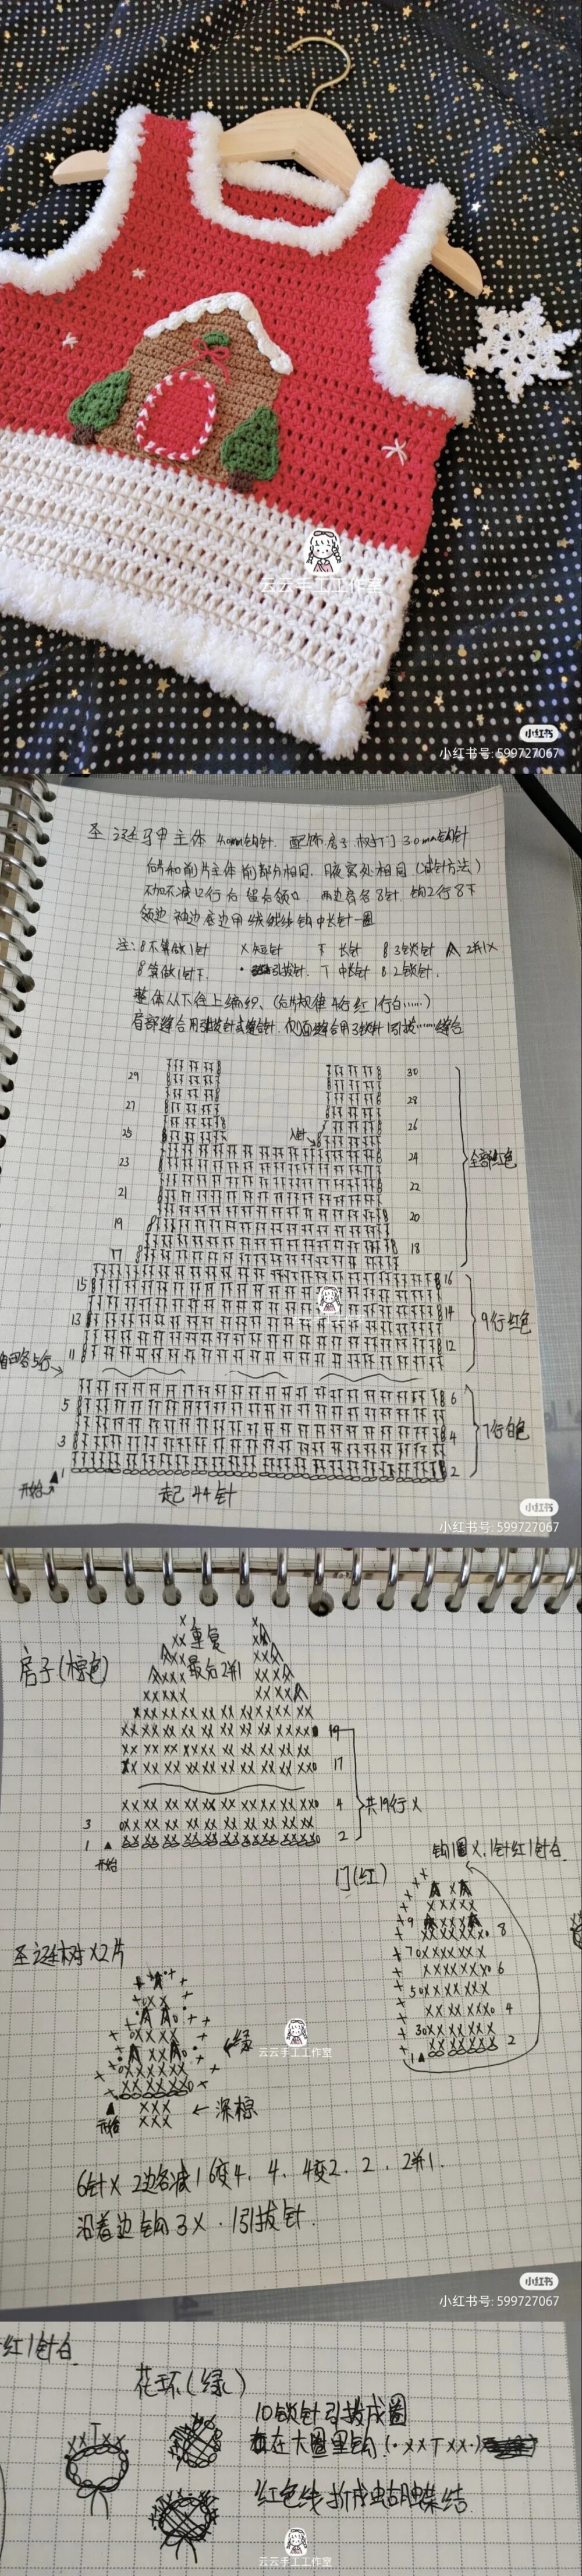 云云手工工作室
小红书
小红书号: 599727067
圣诞马甲主体 4.0mm钩针. 配饰房子.树.门 3.0mm钩针
后片和前片主体前部分相同. 腋窝处相同 (减针方法)
不加不减12行后 留后领口. 两边肩各8针. 钩2行8下
领边 袖边 底边用绒绒线钩中长针一圈
注: 8不算做1针 X 短针 下 长针 8 3锁针 2并1X
8算做1针下. • 引拔针. T 中长针 8 2锁针.
整体从下往上编织. (后片规律 4行红 1行白......)
肩部缝合用引拔针或缝合针. 侧面缝合用3锁针 1引拔......缝合
29 30
27 28
25 入针 26
23 24
21 22
19 20
17 18
全部红色
15 16
13 14
11 12
9行红色
5 6
3 4
1 2
7行白色
开始
起 44 针
小红书
小红书号: 599727067
房子(棕色)
重复
最后2并1
19
17
4
3
1 2
开始
共19行 X
钩1圈 X, 1针红1针白
门(红)
9 8
7 6
5 4
3 2
1
圣诞树 X2片
绿
开始
深棕
云云手工工作室
6针X 2边各减1 6变4. 4. 4变2. 2. 2并1.
沿着边钩3X. 1引拔针.
小红书
小红书号: 599727067
红1针白
花环(绿)
10锁针引拔成圈
在大圈里钩 (• X X T X X •)
红色线折成蝴蝶结
云云手工工作室